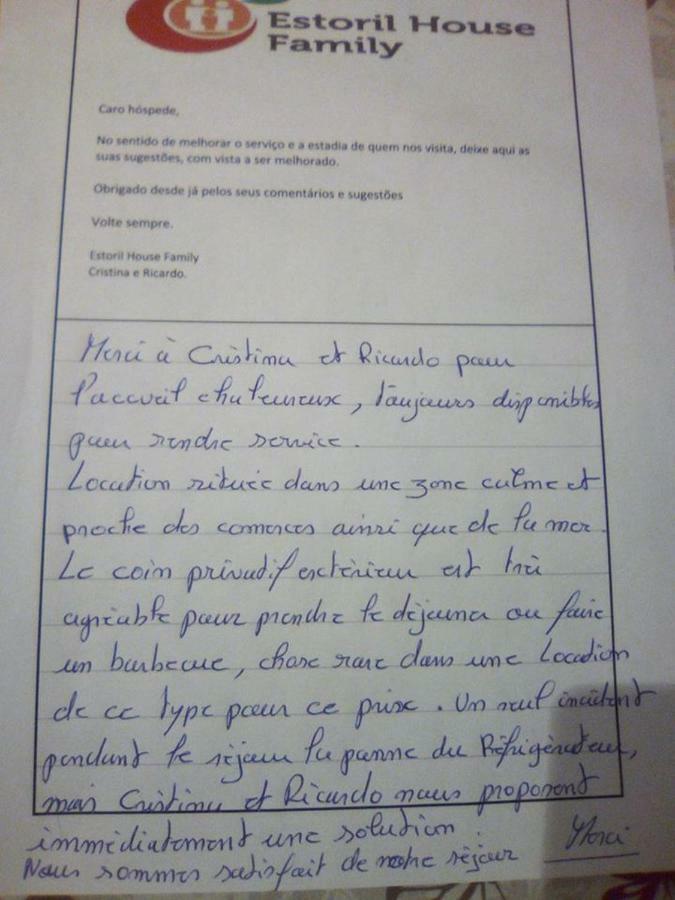 Estoril House
Family
Caro hóspede,
No sentido de melhorar o serviço e a estadia de quem nos visita, deixe aqui as
suas sugestões, com vista a ser melhorado.
Obrigado desde já pelos seus comentários e sugestões
Volte sempre.
Estoril House Family
Cristina e Ricardo.
Merci à Cristina et Ricardo pour
l'accueil chaleureux, toujours disponibles
pour rendre service.
Location située dans une zone calme et
proche des comerces ainsi que de la mer.
Le coin privatif extérieur est très
agréable pour prendre le déjeuner ou faire
un barbecue, chose rare dans une Location
de ce type pour ce prix. Un seul incident
pendant le séjour la panne du Réfrigérateur,
mais Cristina et Ricardo nous proposent
immédiatement une solution.
Nous sommes satisfait de notre séjour
Merci